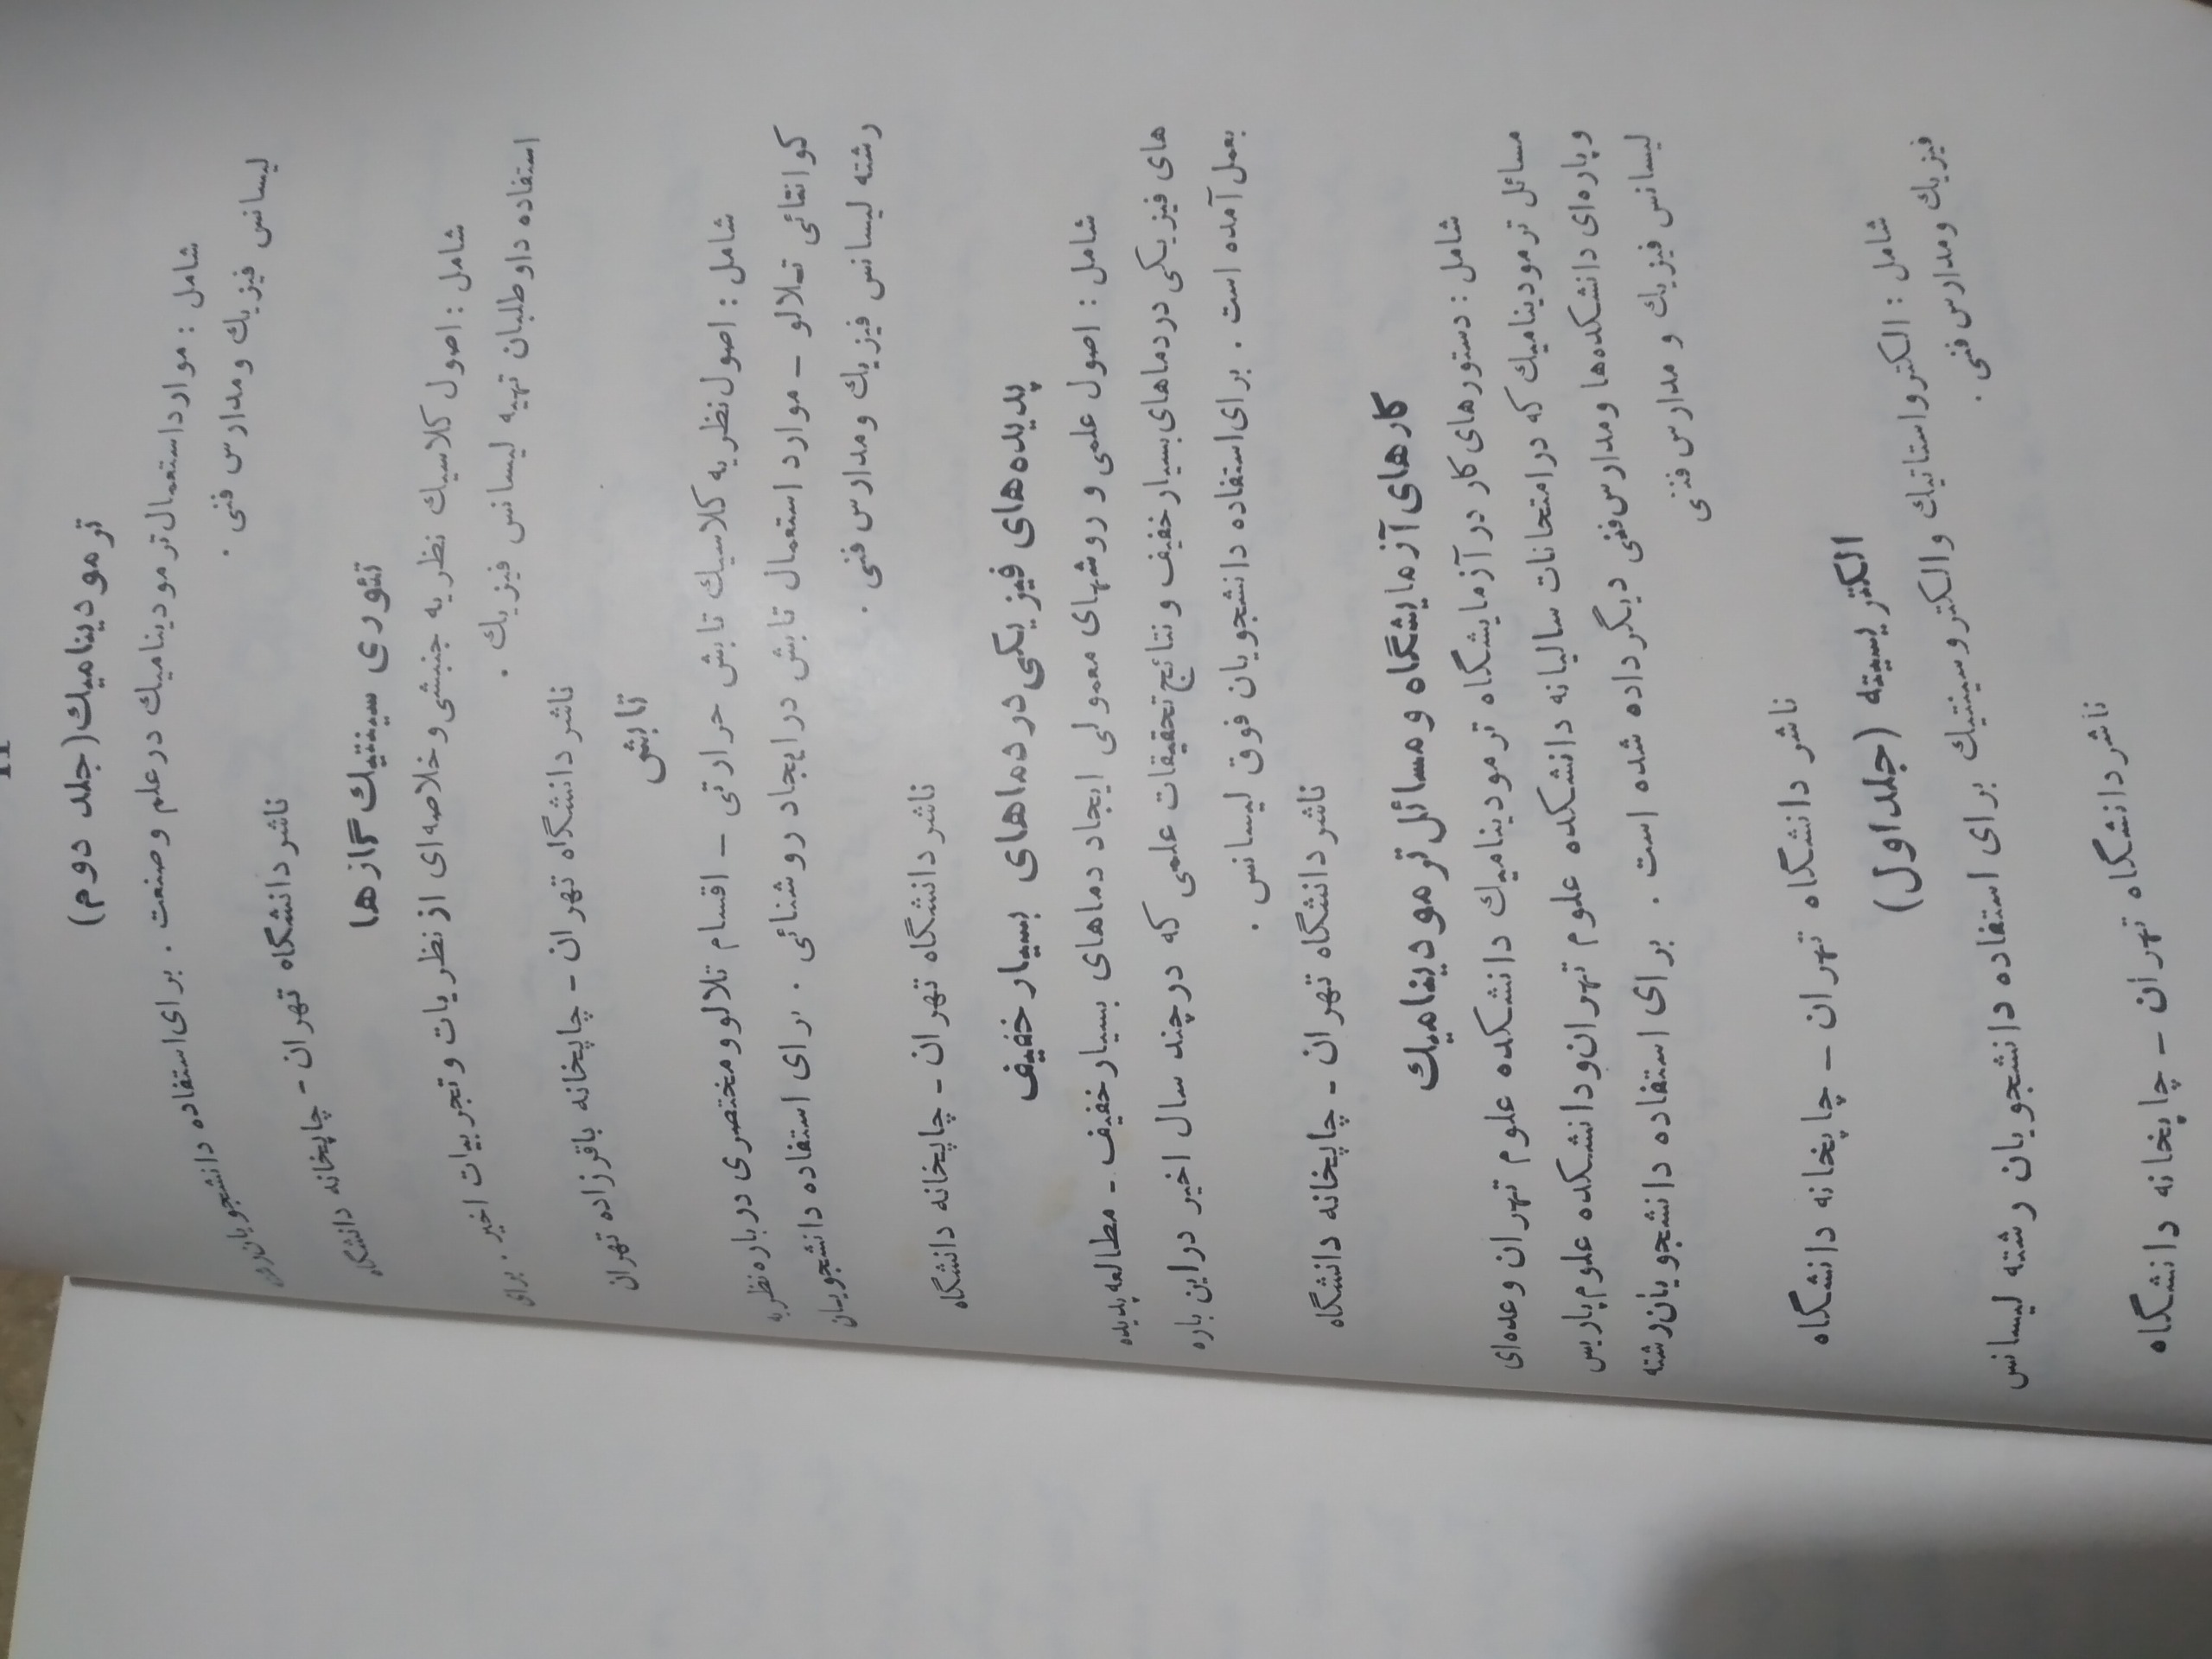 ترمودینامیك (جلد دوم)
شامل : موارد استعمال ترمودینامیك درعلم وصنعت . برای استفاده دانشجویان
لیسانس فیزیك ومدارس فنی .
ناشر دانشگاه تهران - چاپخانه دانشگاه
تئوری سینتیك گازها
شامل : اصول کلاسیك نظریه جنبشی وخلاصه‌ای از نظریات وتجربیات اخیر . برای
استفاده داوطلبان تهیه لیسانس فیزیك .
ناشر دانشگاه تهران - چاپخانه باقرزاده تهران
تابش
شامل : اصول نظریه کلاسیك تابش حرارتی – اقسام تلالو ومختصری درباره نظریه
کوانتائی تلالو – موارد استعمال تابش درایجاد روشنائی . برای استفاده دانشجویان
رشته لیسانس فیزیك ومدارس فنی .
ناشر دانشگاه تهران - چاپخانه دانشگاه
پدیده‌های فیزیکی در دماهای بسیار خفیف
شامل : اصول علمی و روشهای معمولی ایجاد دماهای بسیار خفیف - مطالعه پدیده
های فیزیکی در دماهای بسیار خفیف و نتایج تحقیقات علمی که درچند سال اخیر دراین باره
بعمل آمده است . برای استفاده دانشجویان فوق لیسانس .
ناشر دانشگاه تهران - چاپخانه دانشگاه
کارهای آزمایشگاه ومسائل ترمودینامیك
شامل : دستورهای کار در آزمایشگاه ترمودینامیك دانشکده علوم تهران وعده‌ای
مسائل ترمودینامیك که درامتحانات سالیانه دانشکده علوم تهران ودانشکده علوم پاریس
وپاره‌ای دانشکده‌ها ومدارس فنی دیگر داده شده است . برای استفاده دانشجویان رشته
لیسانس فیزیك و مدارس فنی
ناشر دانشگاه تهران – چاپخانه دانشگاه
الکتریسیته (جلداول)
شامل : الکترواستاتیك والکتروسینتیك برای استفاده دانشجویان رشته لیسانس
فیزیك ومدارس فنی .
ناشر دانشگاه تهران – چاپخانه دانشگاه